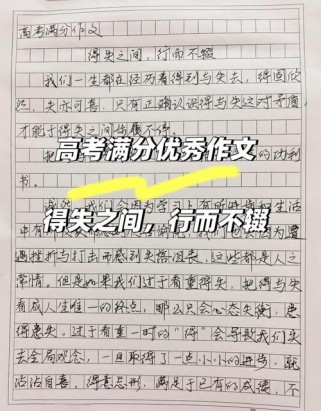 高考满分作文
得失之间，行而不辍
我们一生都在经历着得到与失去，得固欣
然，失亦可喜，只有正确认识得与失这对矛盾，
才能于得失之间步履不停。
把
的功利
书。
高考满分优秀作文
得失之间，行而不辍
遭
遇挫折与打击而感到失落沮丧，这些都是人之
常情。但是如果我们过于看重得失，把得与失
看成人生唯一的终点，那么只会心态失衡，患
得患失。过于看重一时的“得”会导致我们失
去全局观念，一旦取得了一点小小的进步，就
沾沾自喜，得意忘形，满足于已有的成绩，不